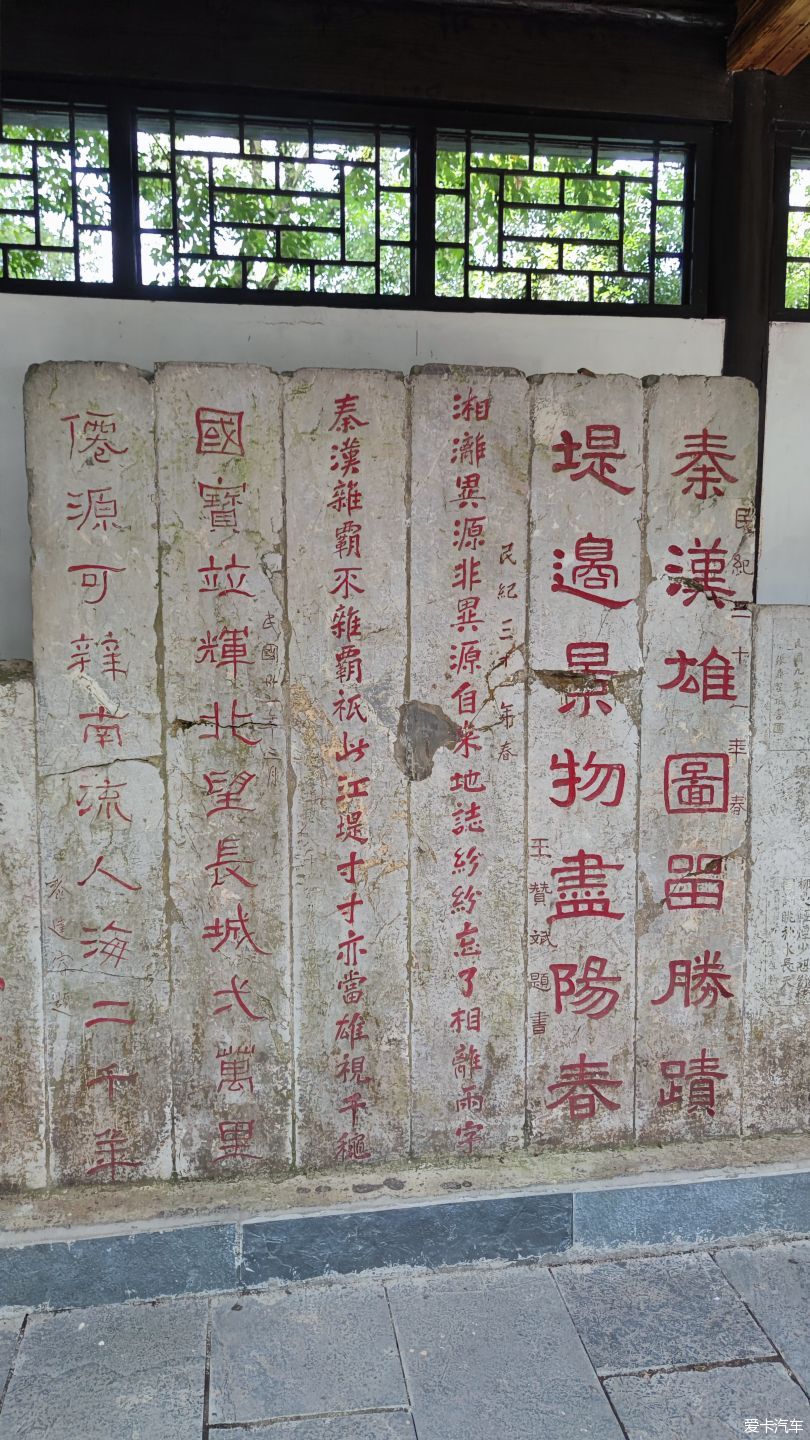 民紀三十一年春
秦漢雄圖畱勝蹟
堤邊景物盡陽春
王贊斌題書
民紀三十一年春
湘灕異源非異源自來地誌紛紛忘了相離兩字
秦漢雜霸不雜霸祇此江堤寸寸亦當雄視千龝
民國卅一年二月
國寶竝輝北望長城弌萬里
僊源可辨南流入海二千年
題
爱卡汽车